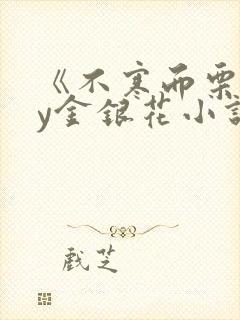 《不寒而栗
y金银花小说
戲芝